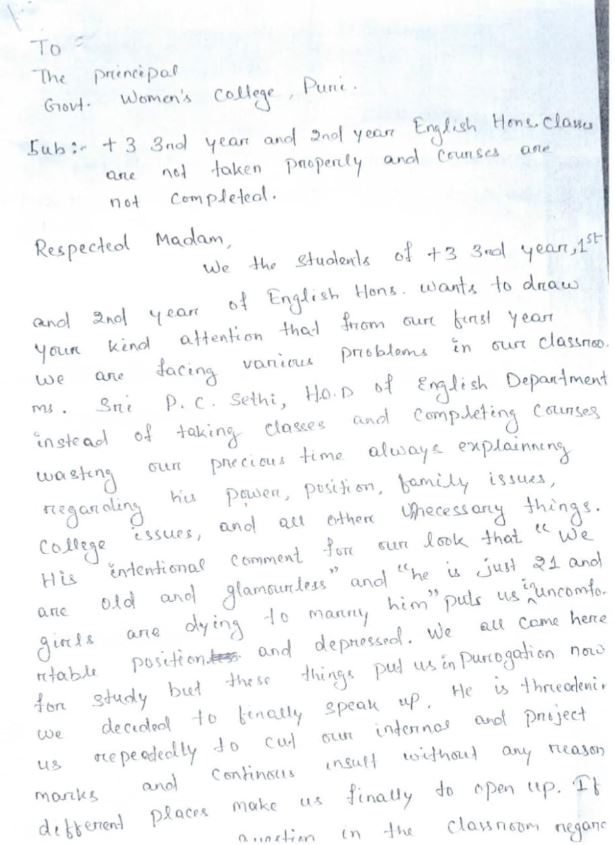 To
The principal
Govt. Women's College, Puri.
Sub:- +3 3rd year and 2nd year English Hons. Classes
are not taken properly and courses are
not completed.
Respected Madam,
We the students of +3 3rd year, 1st
and 2nd year of English Hons. wants to draw
your kind attention that from our first year
we are facing various problems in our classroo-
ms. Sri P. C. Sethi, H.O.D of English Department
instead of taking classes and completing courses
wasting our precious time always explainning
regarding his power, position, family issues,
College issues, and all other Unecessary things.
His intentional comment for our look that "We
are old and glamourless" and "he is just 21 and
girls are dying to marry him" puts us in uncomfo-
rtable position and depressed. We all came here
for study but these things put us in purogation now
we decided to finally speak up. He is threatenin
us repeatedly to cut our internal and project
marks and continous insult without any reason
different places make us finally to open up. If
question in the classroom regard